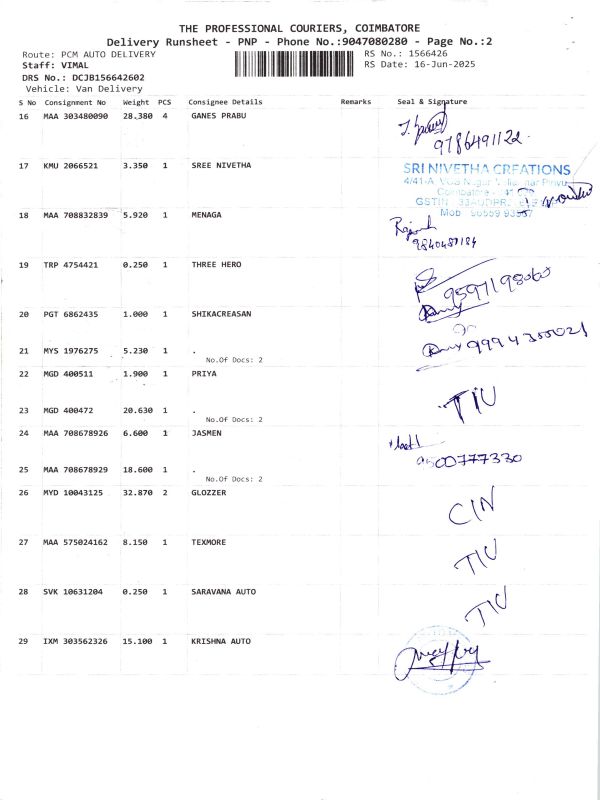 THE PROFESSIONAL COURIERS, COIMBATORE
Delivery Runsheet - PNP - Phone No.:9047080280 - Page No.:2
Route: PCM AUTO DELIVERY RS No.: 1566426
Staff: VIMAL RS Date: 16-Jun-2025
DRS No.: DCJB156642602
Vehicle: Van Delivery
S No Consignment No Weight PCS Consignee Details Remarks Seal & Signature
16 MAA 303480090 28.380 4 GANES PRABU
9786491122
17 KMU 2066521 3.350 1 SREE NIVETHA
SRI NIVETHA CREATIONS
4/41-A,
Coimbatore
GSTIN
Mob
18 MAA 708832839 5.920 1 MENAGA
19 TRP 4754421 0.250 1 THREE HERO
9597198060
20 PGT 6862435 1.000 1 SHIKACREASAN
21 MYS 1976275 5.230 1 .
No.Of Docs: 2
22 MGD 400511 1.900 1 PRIYA
TIU
23 MGD 400472 20.630 1 .
No.Of Docs: 2
24 MAA 708678926 6.600 1 JASMEN
9500777330
25 MAA 708678929 18.600 1 .
No.Of Docs: 2
26 MYD 10043125 32.870 2 GLOZZER
CIN
27 MAA 575024162 8.150 1 TEXMORE
TIU
28 SVK 10631204 0.250 1 SARAVANA AUTO
TIU
29 IXM 303562326 15.100 1 KRISHNA AUTO